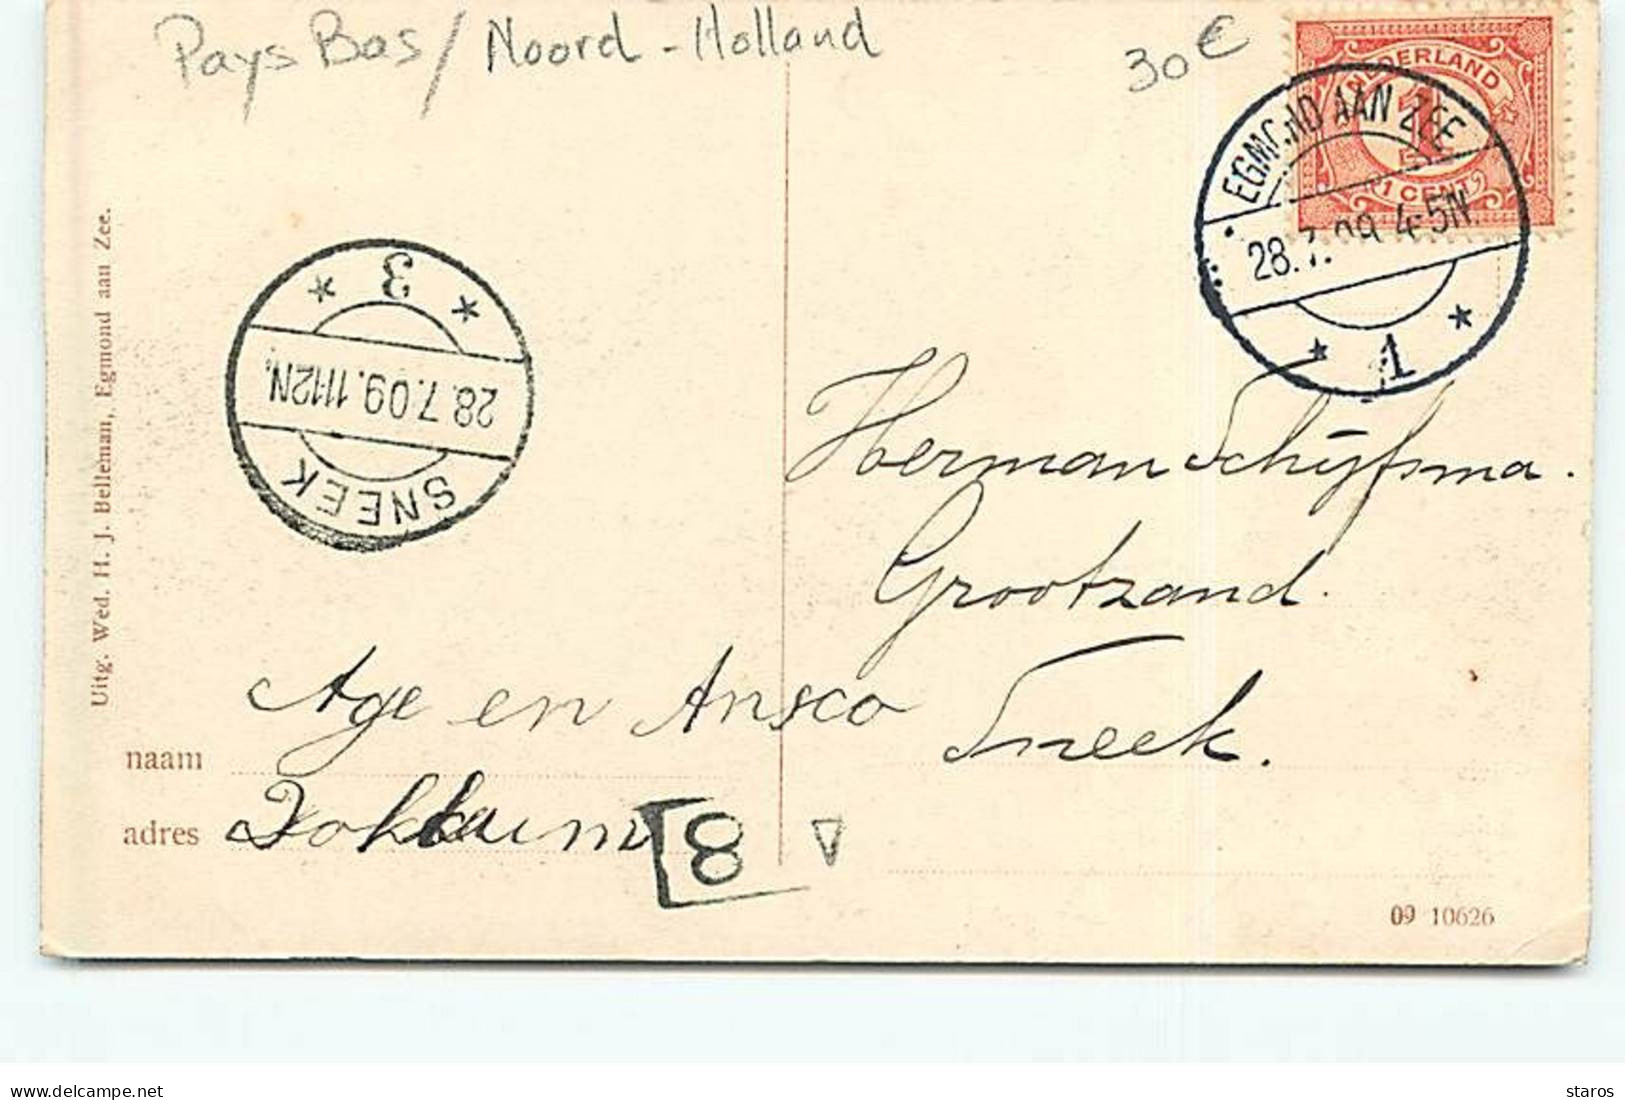 Pays Bas / Noord - Holland
30 €
NEDERLAND
1
1 CENT
EGMOND AAN ZEE
28.7.09 4-5N.
1
3
28.7.09.11-12N.
SNEEK
Uitg. Wed. H. J. Belleman, Egmond aan Zee.
Herman Schijfsma.
Grootzand.
Sneek.
Age en Ansco
naam
adres Dokkum
8
09 10626
delcampe.net
staros